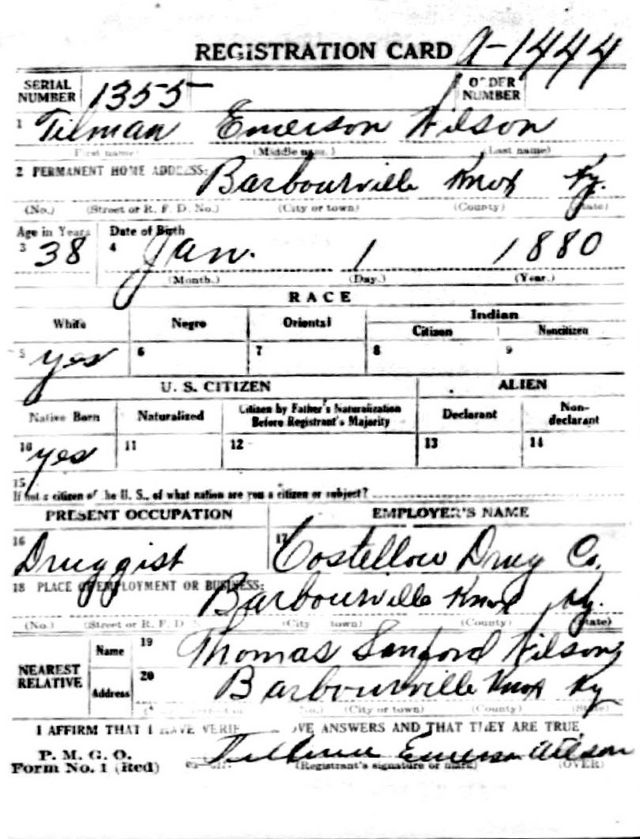 REGISTRATION CARD A-1444
SERIAL NUMBER 1355 ORDER NUMBER
1 Tilman Emerson Wilson
First name (Middle name.) (Last name)
2 PERMANENT HOME ADDRESS:
Barbourville Knox Ky.
(No.) (Street or R. F. D. No.) (City or town) (County) (State)
Age in Years Date of Birth
3 38 4 Jan. 1 1880
(Month.) (Day.) (Year.)
RACE
White Negro Oriental Indian
Citizen Noncitizen
5 yes 6 7 8 9
U. S. CITIZEN ALIEN
Native Born Naturalized Citizen by Father's Naturalization Before Registrant's Majority Declarant Non-declarant
10 yes 11 12 13 14
15
If not a citizen of the U. S., of what nation are you a citizen or subject?
PRESENT OCCUPATION EMPLOYER'S NAME
16 Druggist 17 Costellow Drug Co.
18 PLACE OF EMPLOYMENT OR BUSINESS:
Barbourville Knox Ky.
(No.) (Street or R. F. D. (City town) (County) (State)
NEAREST RELATIVE Name 19 Thomas Sanford Wilson
Address 20 Barbourville Knox Ky
No.) (City or town) (County) (State)
I AFFIRM THAT I HAVE VERIF OVE ANSWERS AND THAT THEY ARE TRUE
P. M. G. O.
Form No. 1 (Red) Emerson Wilson
(Registrant's signature or mark) (OVER)